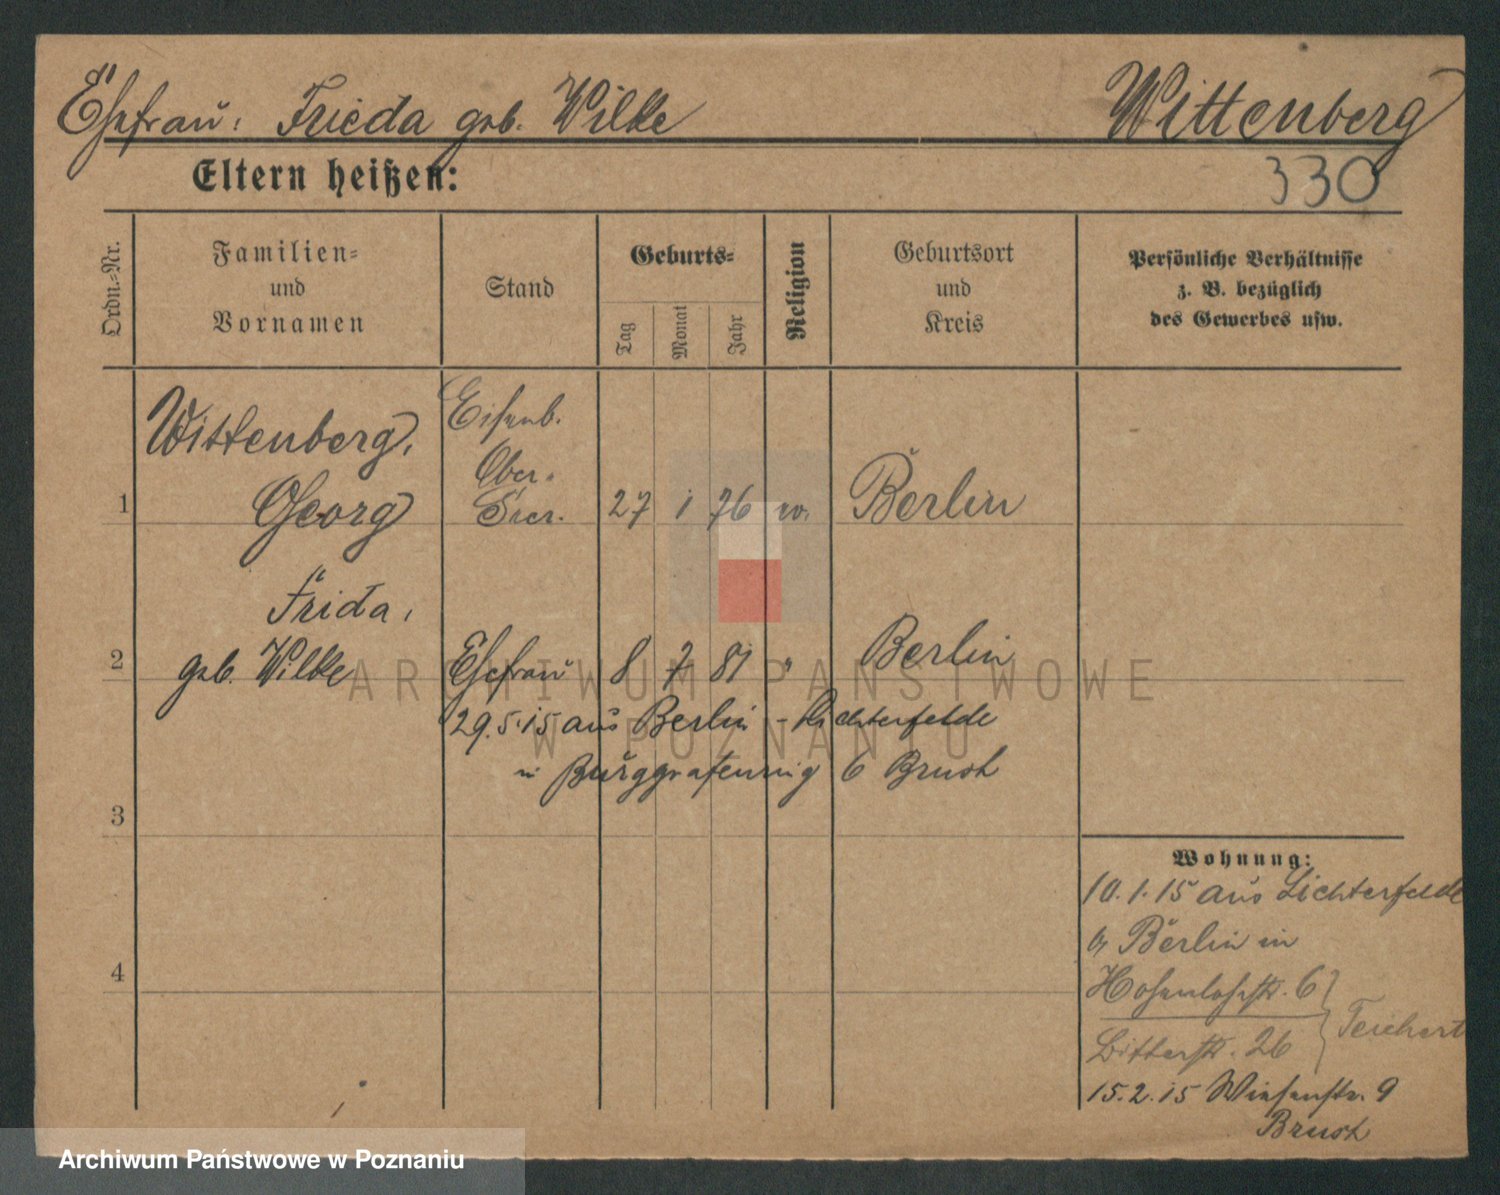 Ehefrau: Frieda geb. Wilke
Wittenberg
330
Eltern heißen:
Ordn.-Nr.
Familien-
und
Vornamen
Stand
Geburts-
Tag
Monat
Jahr
Religion
Geburtsort
und
Kreis
Persönliche Verhältnisse
z. B. bezüglich
des Gewerbes usw.
1
Wittenberg,
Georg
Eisenb.
Ober-
Secr.
27
1
76
ev.
Berlin
2
Frida,
geb. Wilke
Ehefrau
8
7
81
"
Berlin
29.5.15 aus Berlin - Lichterfelde
Burggrafenring 6 Brush
3
4
Wohnung:
10.1.15 aus Lichterfelde
Berlin in
Hohenlohestr. 6
Teichert
Ritterstr. 26
15.2.15 Wiesenstr. 9
Brush
ARCHIWUM PAŃSTWOWE
W POZNANIU
Archiwum Państwowe w Poznaniu